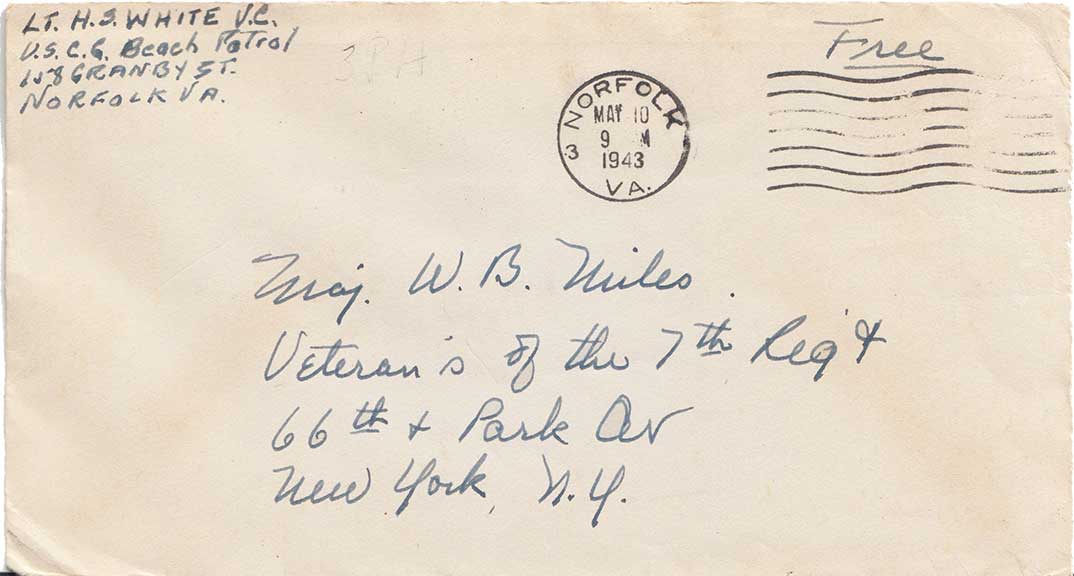 LT. H.S. WHITE V.C.
U.S.C.G. Beach Patrol
158 GRANBY ST.
NORFOLK VA.
3PH
Free
NORFOLK
MAY 10
9 M
1943
3
VA.
Maj. W. B. Miles.
Veteran's of the 7th Reg't
66th + Park Av
New York, N.Y.